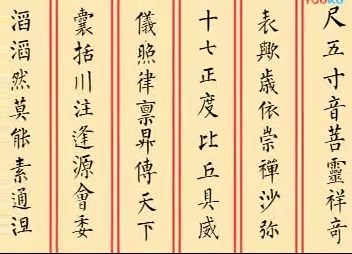 尺五寸音菩靈祥奇
表歟歲依崇禪沙弥
十七正度比丘具威
儀照律禀昇傳天下
囊括川注逢源會委
滔滔然莫能素通涅